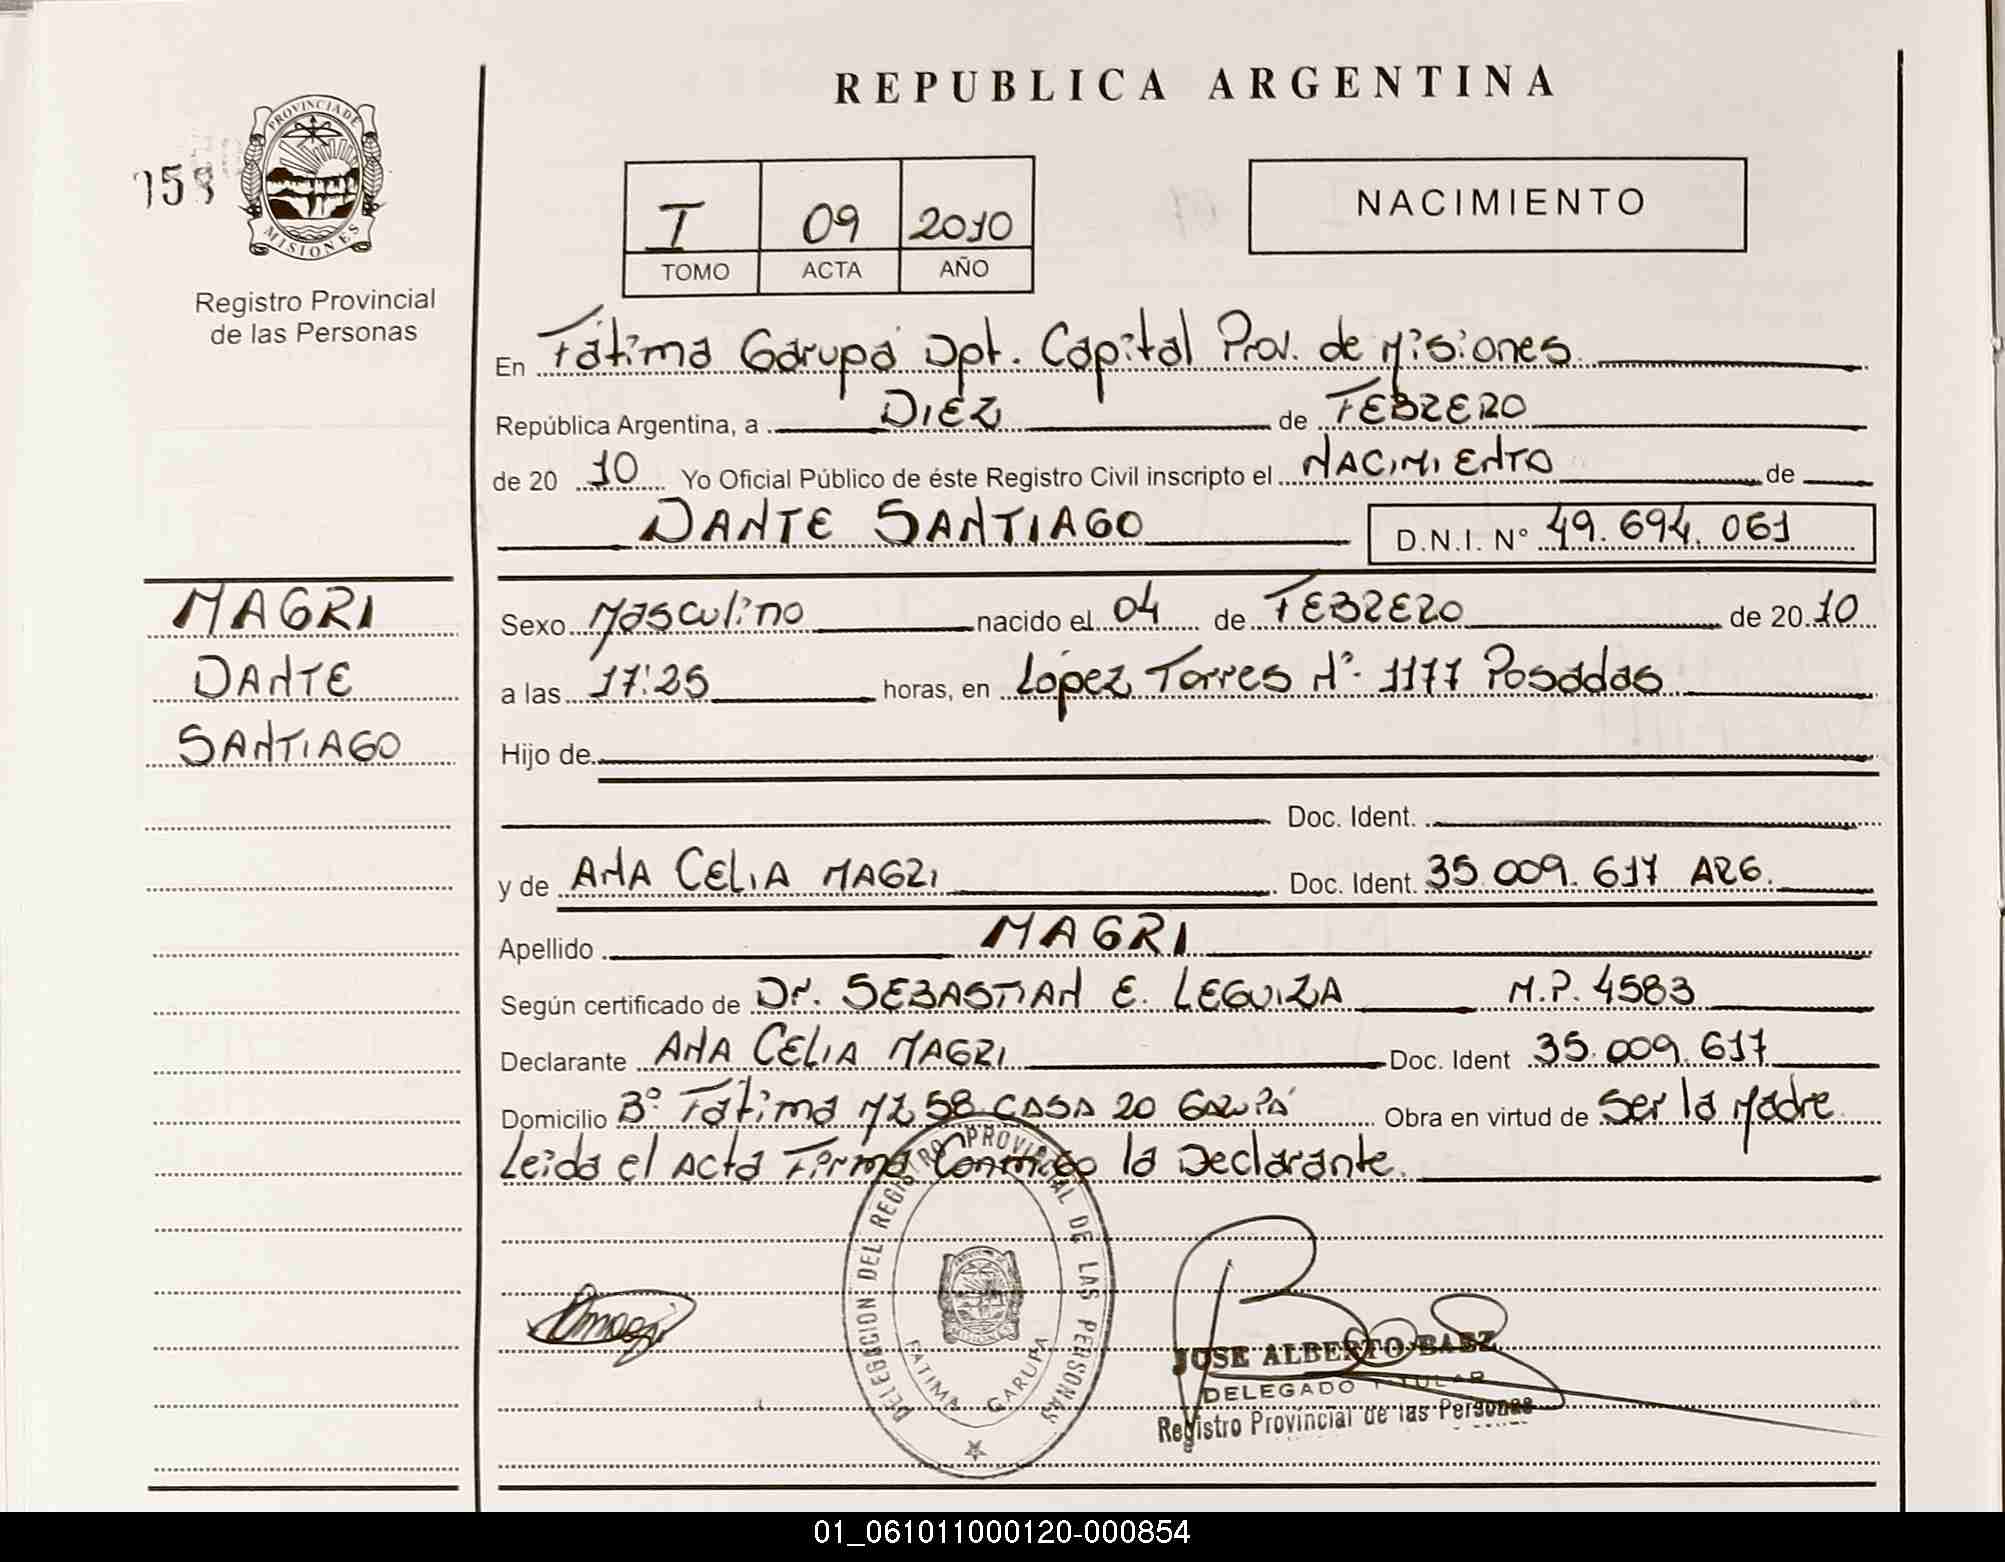 REPUBLICA ARGENTINA
PROVINCIA DE
MISIONES
Registro Provincial
de las Personas
I 09 2010
TOMO ACTA AÑO
NACIMIENTO
En Fátima Garupá Dpt. Capital Prov. de Misiones
República Argentina, a DIEZ de FEBRERO
de 20 10 Yo Oficial Público de éste Registro Civil inscripto el NACIMIENTO de
DANTE SANTIAGO D.N.I. N° 49.694.061
MAGRI
DANTE
SANTIAGO
Sexo Masculino nacido el 04 de FEBRERO de 20 10
a las 17:25 horas, en López Torres N°. 1177 Posadas
Hijo de
Doc. Ident.
y de ANA CELIA MAGRI Doc. Ident. 35.009.617 ARG.
Apellido MAGRI
Según certificado de Dr. SEBASTIAN E. LEGUIZA M.P. 4583
Declarante ANA CELIA MAGRI Doc. Ident 35.009.617
Domicilio B° Fátima MZ 58 CASA 20 GARUPÁ Obra en virtud de Ser la Madre
Leida el Acta Firma Conmigo la Declarante.
DELEGACION DEL REGISTRO PROVINCIAL DE LAS PERSONAS
FATIMA GARUPA
JOSE ALBERTO BAEZ
DELEGADO TITULAR
Registro Provincial de las Personas
01_061011000120-000854